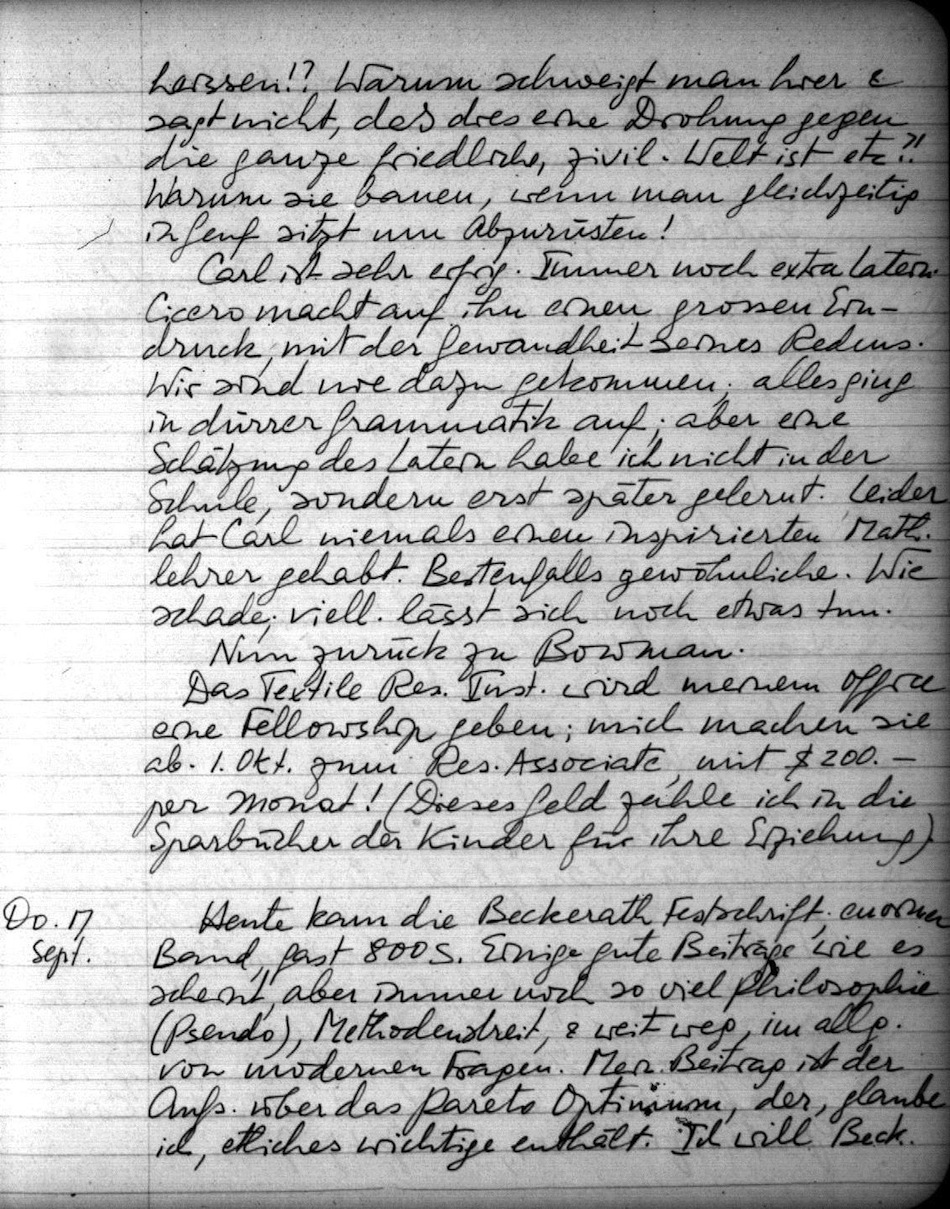 heissen!? Warum schweigt man hier &
sagt nicht, dass dies eine Drohung gegen
die ganze friedliche, zivil. Welt ist etc?!
Warum sie bauen, wenn man gleichzeitig
in Genf sitzt um Abzurüsten!
Carl ist sehr eifrig. Immer noch extra Latein.
Cicero macht auf ihn einen grossen Ein-
druck, mit der Gewandheit seines Redens.
Wir sind nie dazu gekommen; alles ging
in dürrer Grammatik auf; aber eine
Schätzung des Latein habe ich nicht in der
Schule, sondern erst später gelernt. Leider
hat Carl niemals einen inspirierten Math.
lehrer gehabt. Bestenfalls gewöhnliche. Wie
schade; viell. lässt sich noch etwas tun.
Nun zurück zu Bowman.
Das Textile Res. Inst. wird meinem office
eine Fellowship geben; mich machen sie
ab. 1. Okt. zum Res. Associate, mit $200.–
per Monat! (Dieses Geld zahle ich in die
Sparbücher der Kinder für ihre Erziehung)
Do. 17 Heute kam die Beckerath Festschrift, enormer
Sept. Band, fast 800 S. Einige gute Beiträge wie es
scheint, aber immer noch so viel Philosophie
(Pseudo), Methodenstreit, & weit weg, im allg.
von modernen Fragen. Mein Beitrag ist der
Aufs. über das Pareto Optimum, der, glaube
ich, etliches wichtige enthält. Ich will Beck.